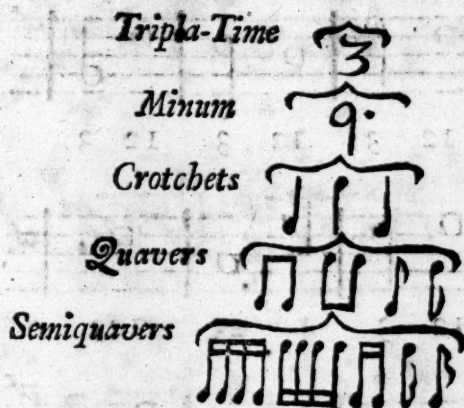 Tripla-Time 3
Minum
Crotchets
Quavers
Semiquavers